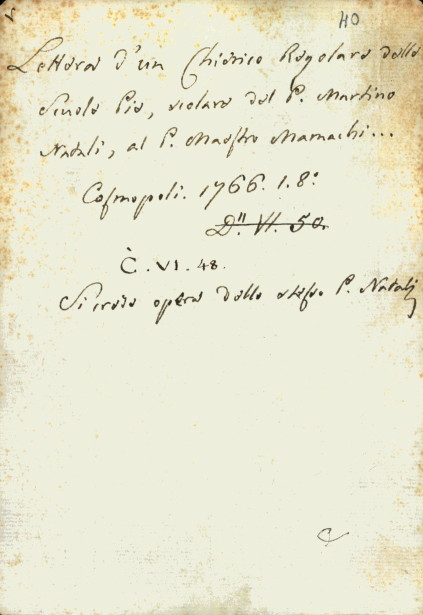 40
Lettera d'un Chierico Regolare delle
Scuole Pie, scolare del P. Martino
Natali, al P. Maestro Mamachi...
Cosmopoli. 1766. 1. 8.º
D." VI. 50.
C. VI. 48.
Si crede opera dello stesso P. Natali